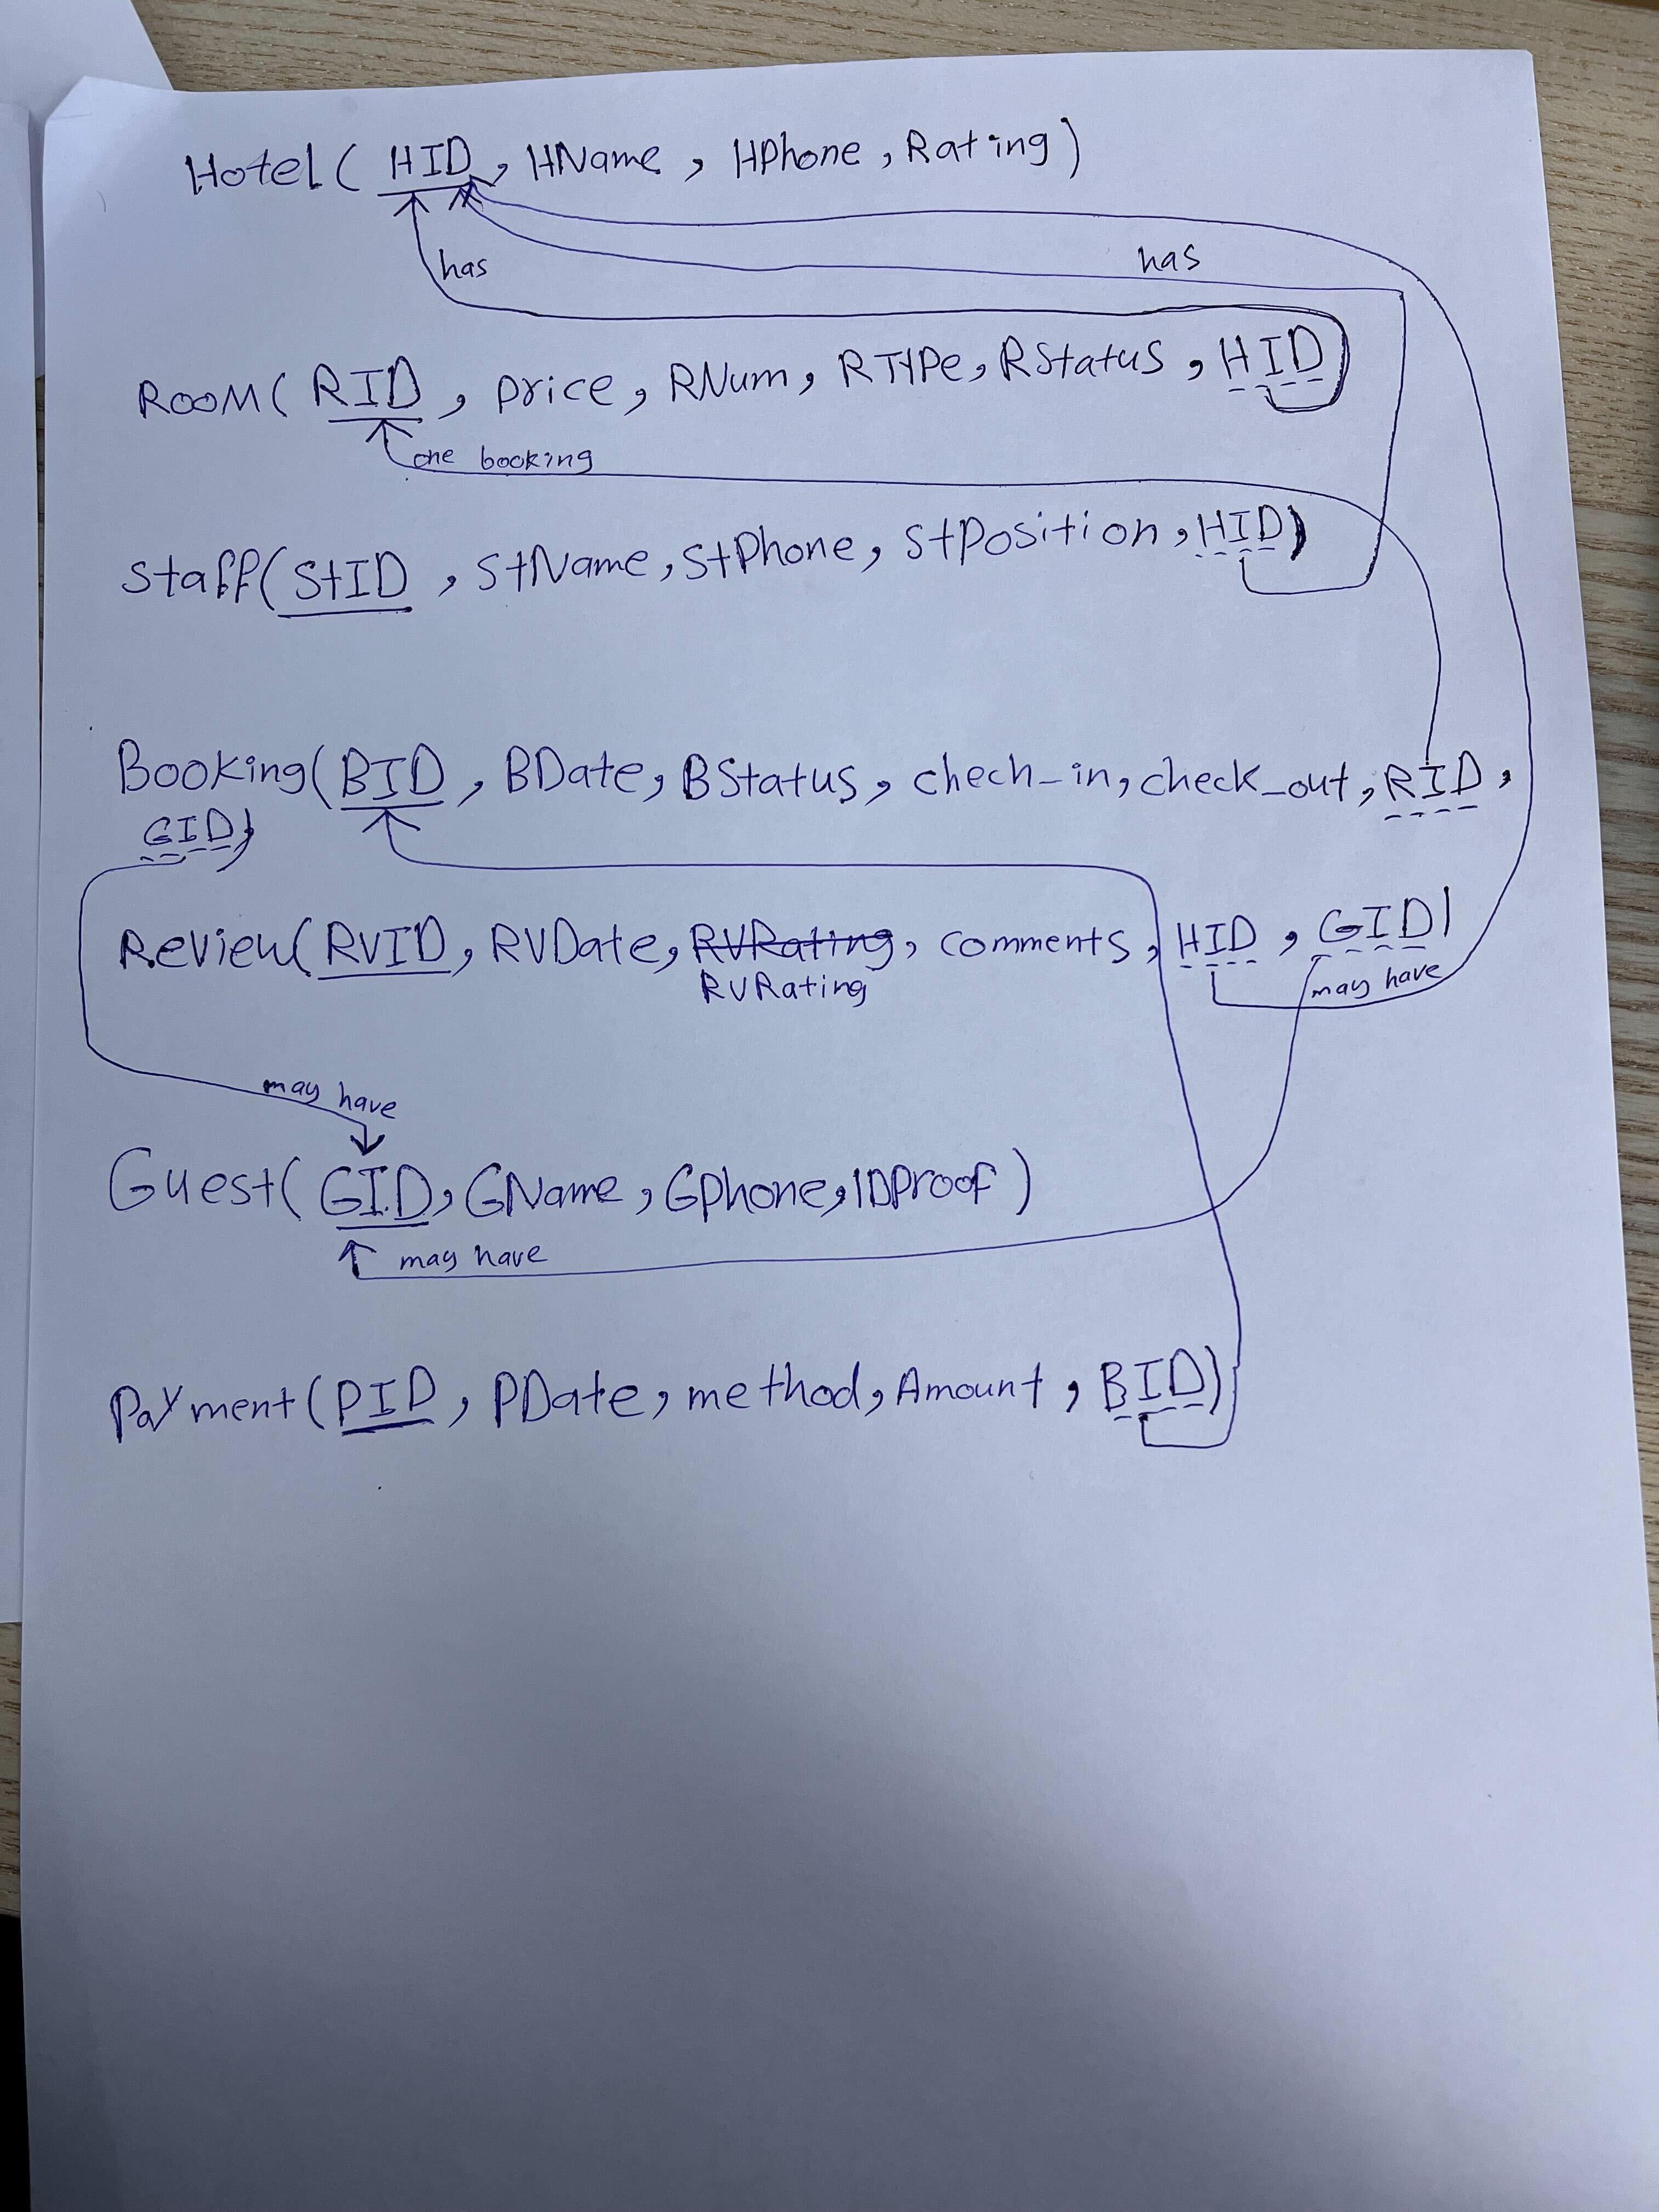 Hotel( HID, HName, HPhone, Rating)
has has
Room( RID, price, RNum, RType, RStatus, HID)
one booking
Staff(StID, StName, StPhone, StPosition, HID)
Booking(BID, BDate, BStatus, chech_in, check_out, RID,
GID)
Review(RVID, RVDate, RVRating, comments, HID, GID)
RVRating
may have
may have
Guest(GID, GName, GPhone, IDProof)
may have
Payment(PID, PDate, method, Amount, BID)